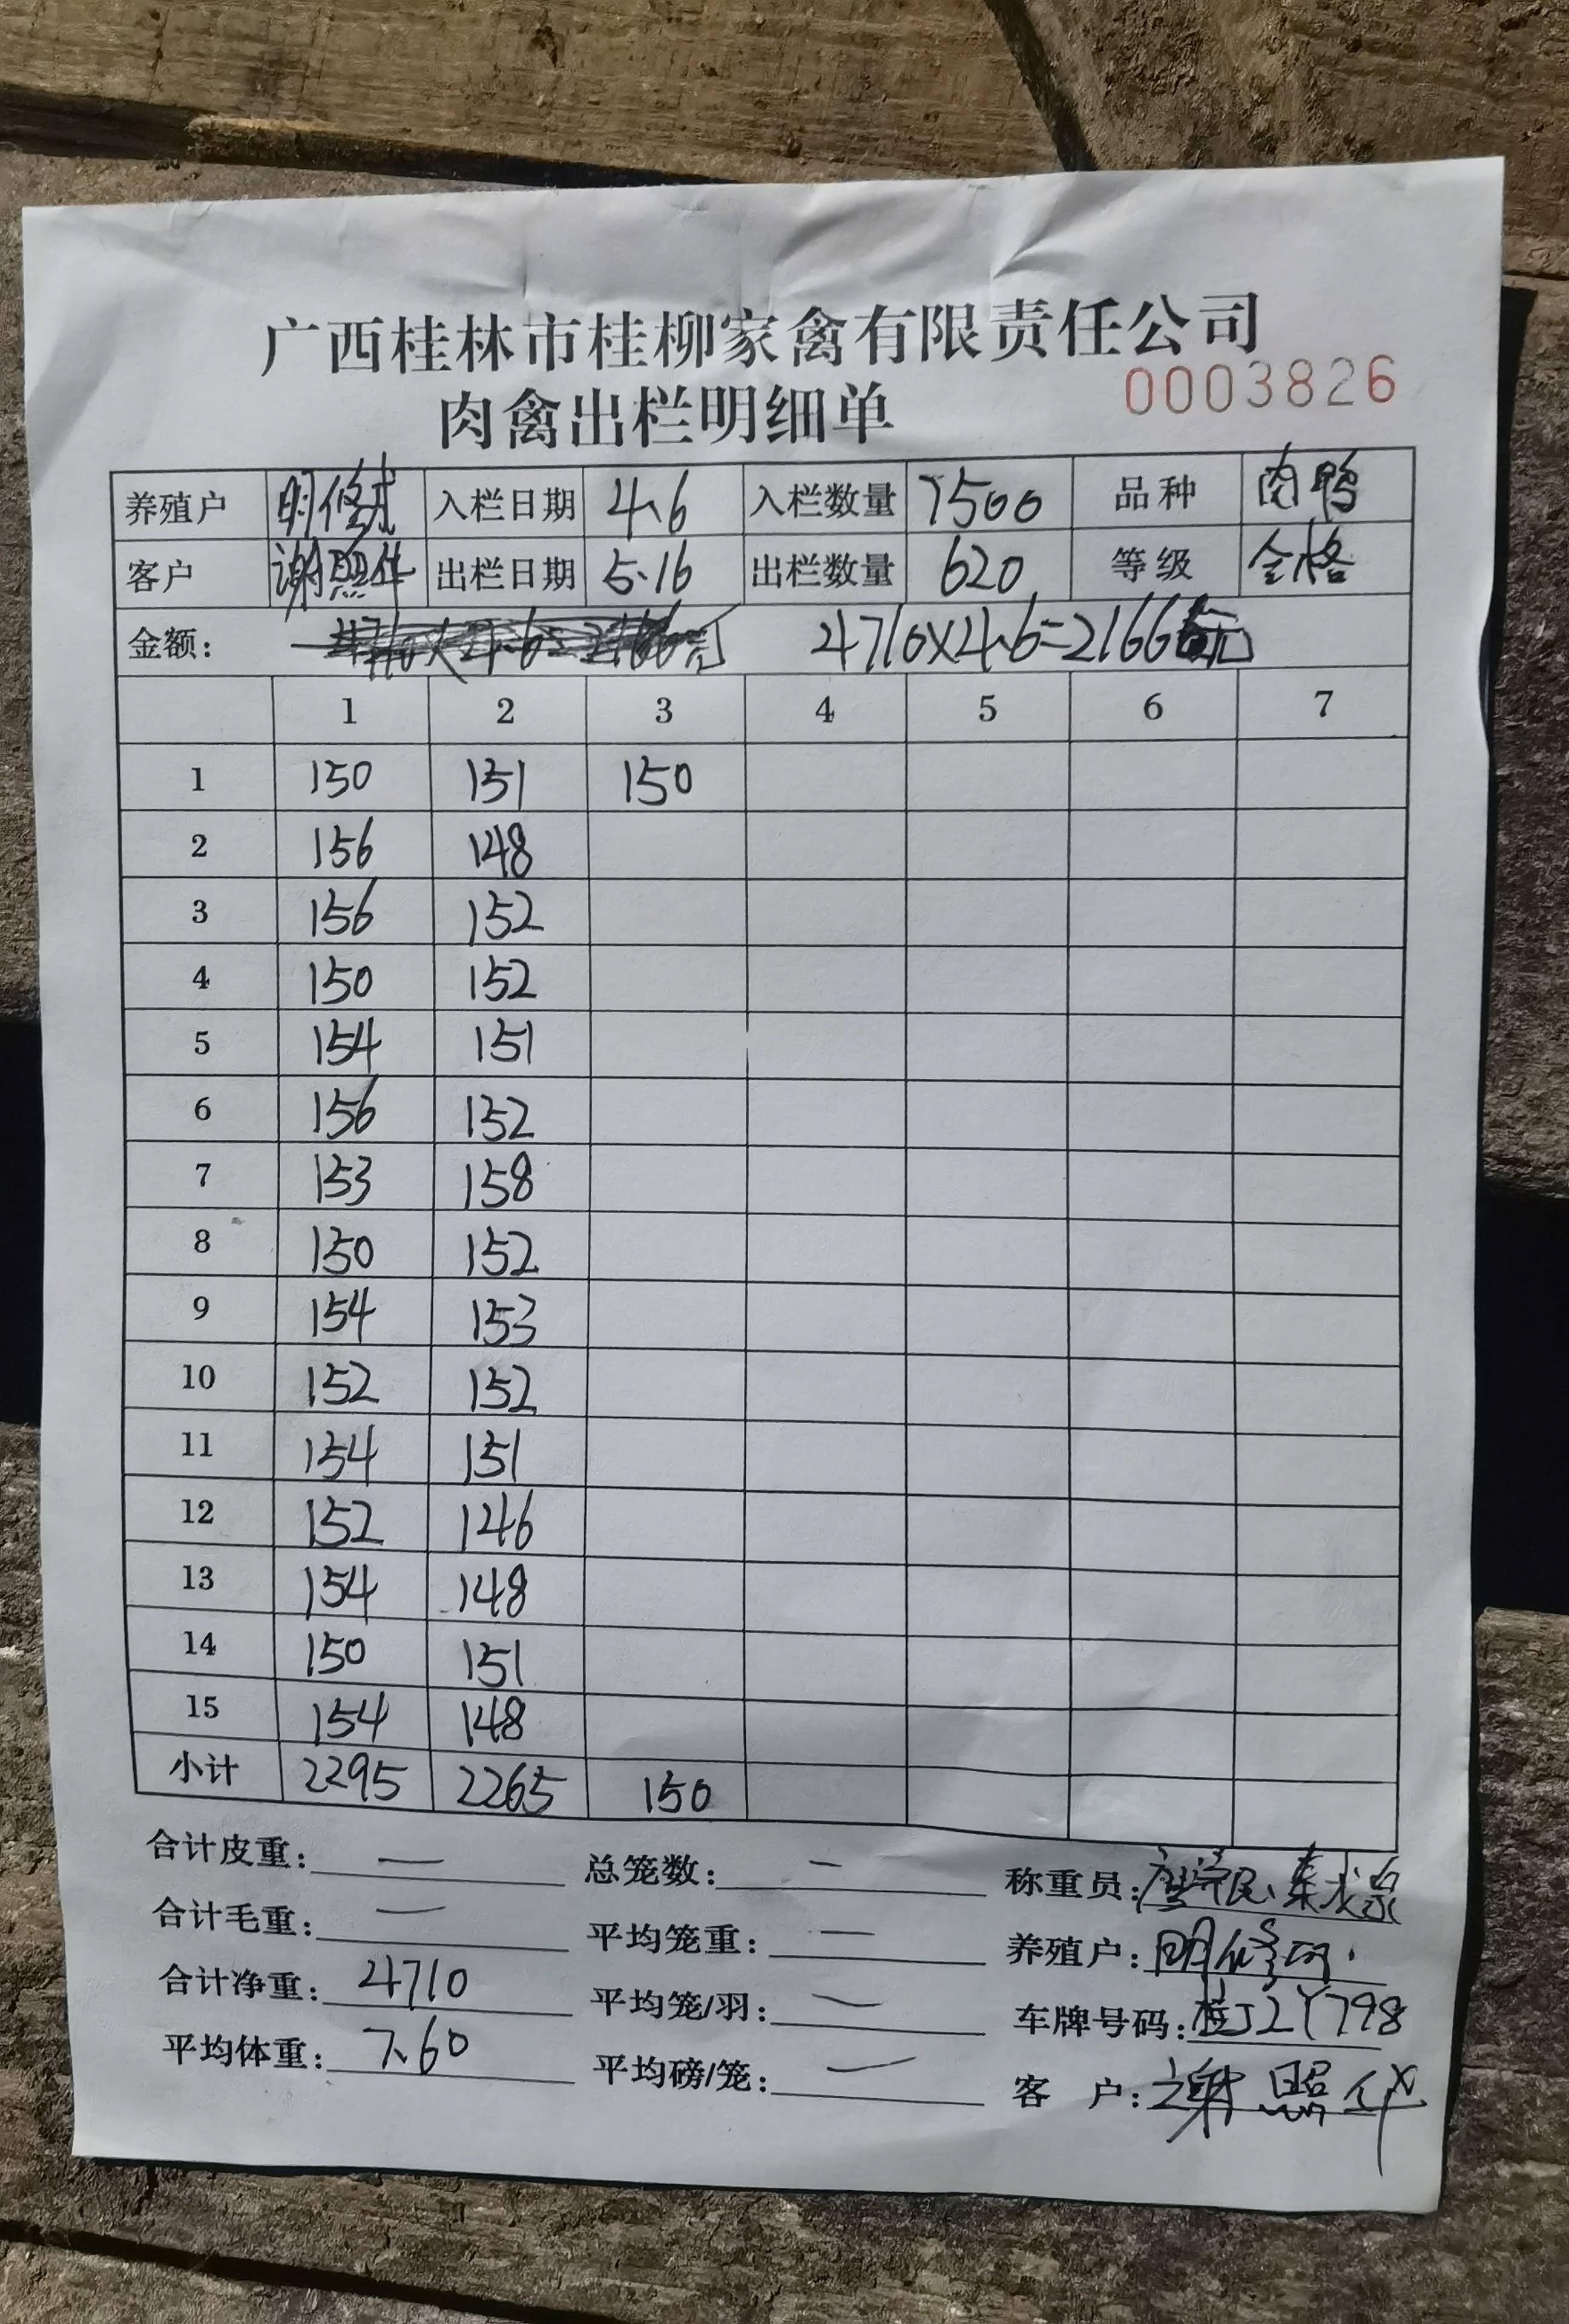 广西桂林市桂柳家禽有限责任公司
肉禽出栏明细单 0003826
养殖户 明修 入栏日期 4.6 入栏数量 7500 品种 肉鸭
客户 谢照华 出栏日期 5.16 出栏数量 620 等级 合格
金额: 4710×4.6=21666元
1 2 3 4 5 6 7
1 150 151 150
2 156 148
3 156 152
4 150 152
5 154 151
6 156 152
7 153 158
8 150 152
9 154 153
10 152 152
11 154 151
12 152 146
13 154 148
14 150 151
15 154 148
小计 2295 2265 150
合计皮重: — 总笼数: — 称重员:
合计毛重: — 平均笼重: — 养殖户: 明修
合计净重: 4710 平均笼/羽: — 车牌号码: 桂J2Y798
平均体重: 7.60 平均磅/笼: — 客 户: 谢照华